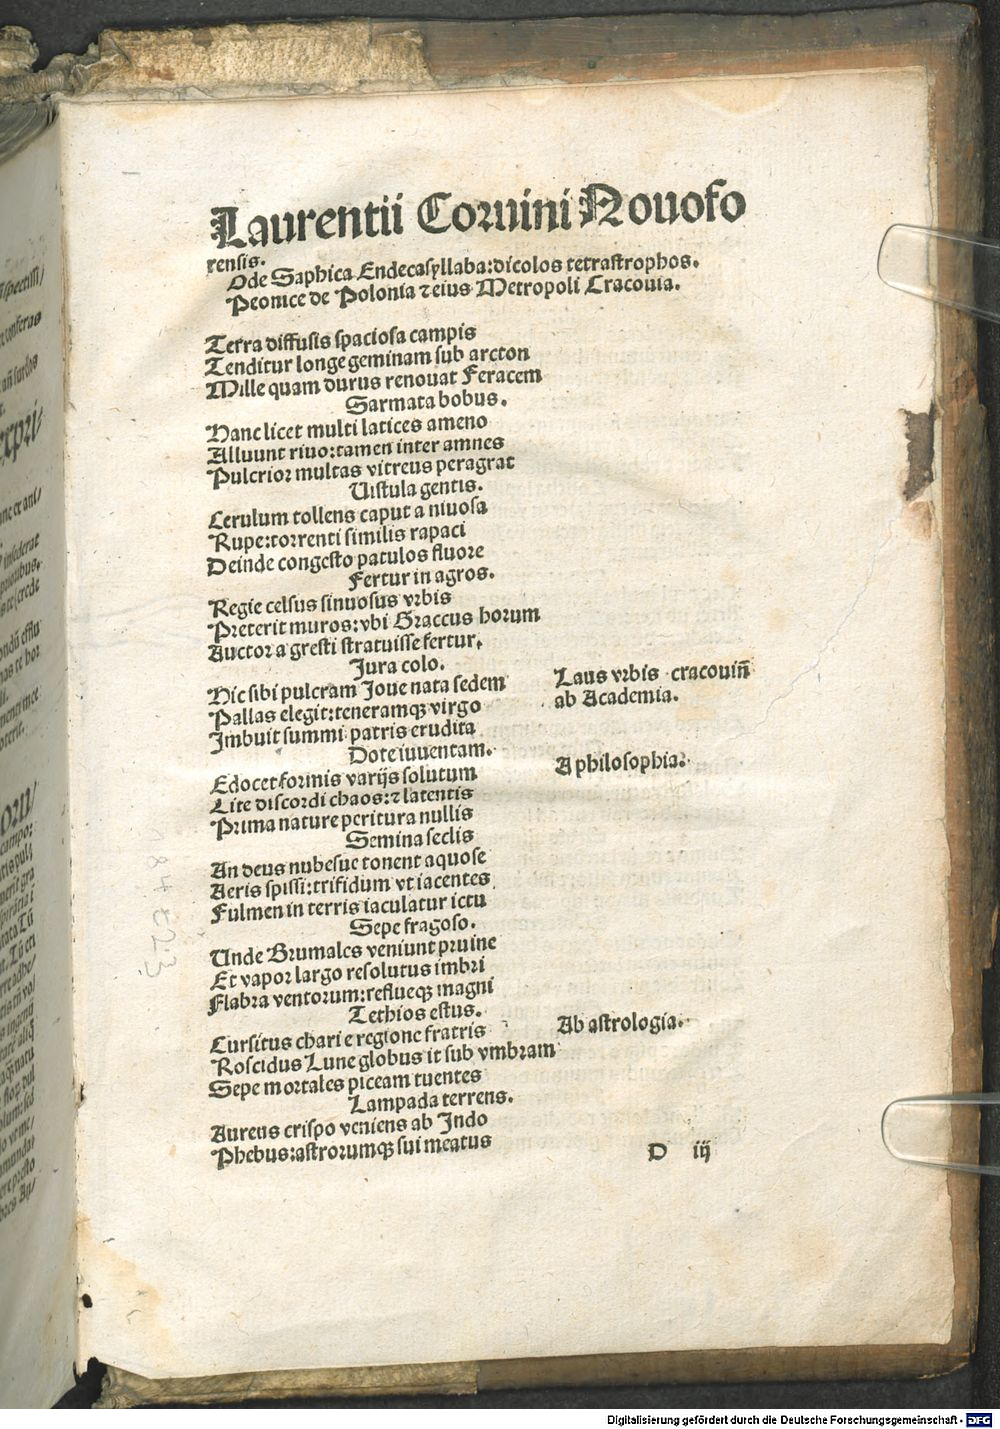 Laurentii Coruini Nouofo
rensis.
Ode Saphica Endecasyllaba: dicolos tetrastrophos.
Peonice de Polonia ⁊ eius Metropoli Cracouia.
Terra diffusis spaciosa campis
Tenditur longe geminam sub arcton
Mille quam durus renouat Feracem
Sarmata bobus.
Hanc licet multi latices ameno
Alluunt riuo: tamen inter amnes
Pulcrior multas vitreus peragrat
Uistula gentis.
Cerulum tollens caput a niuosa
Rupe: torrenti similis rapaci
Deinde congesto patulos fluore
Fertur in agros.
Regie celsus sinuosus vrbis
Preterit muros: vbi Graccus horum
Auctor a gresti stratuisse fertur,
Jura colo.
Hic sibi pulcram Joue nata sedem
Laus vrbis cracouiñ
Pallas elegit: teneramqꝫ virgo
ab Academia.
Imbuit summi patris erudita
Dote iuuentam.
A philosophia.
Edocet formis varijs solutum
Lite discordi chaos: ⁊ latentis
Prima nature peritura nullis
Semina seclis
An deus nubesue tonent aquose
Aeris spissi: trifidum vt iacentes
Fulmen in terris iaculatur ictu
Sepe fragoso.
Unde Brumales veniunt pruine
Et vapor largo resolutus imbri
Flabra ventorum: reflueqꝫ magni
Tethios estus.
Ab astrologia.
Cursitus chari e regione fratris
Roscidus Lune globus it sub vmbram
Sepe mortales piceam tuentes
Lampada terrens.
Aureus crispo veniens ab Indo
Phebus: astrorumqꝫ sui meatus
D iij
Digitalisierung gefördert durch die Deutsche Forschungsgemeinschaft - DFG